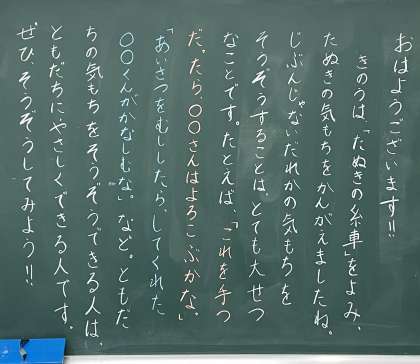 おはようございます!!
きのうは、「たぬきの糸車」をよみ、
たぬきの気もちをかんがえましたね。
じぶんじゃないだれかの気もちを
そうぞうすることは、とても大せつ
なことです。たとえば、「これを手つ
だったら、〇〇さんはよろこぶかな。」
「あいさつをむししたら、してくれた
〇〇くんがかなしむな。」など。ともだ
ちの気もちをそうぞうできる人は、
ともだちにやさしくできる人です。
ぜひ、そうぞうしてみよう!!